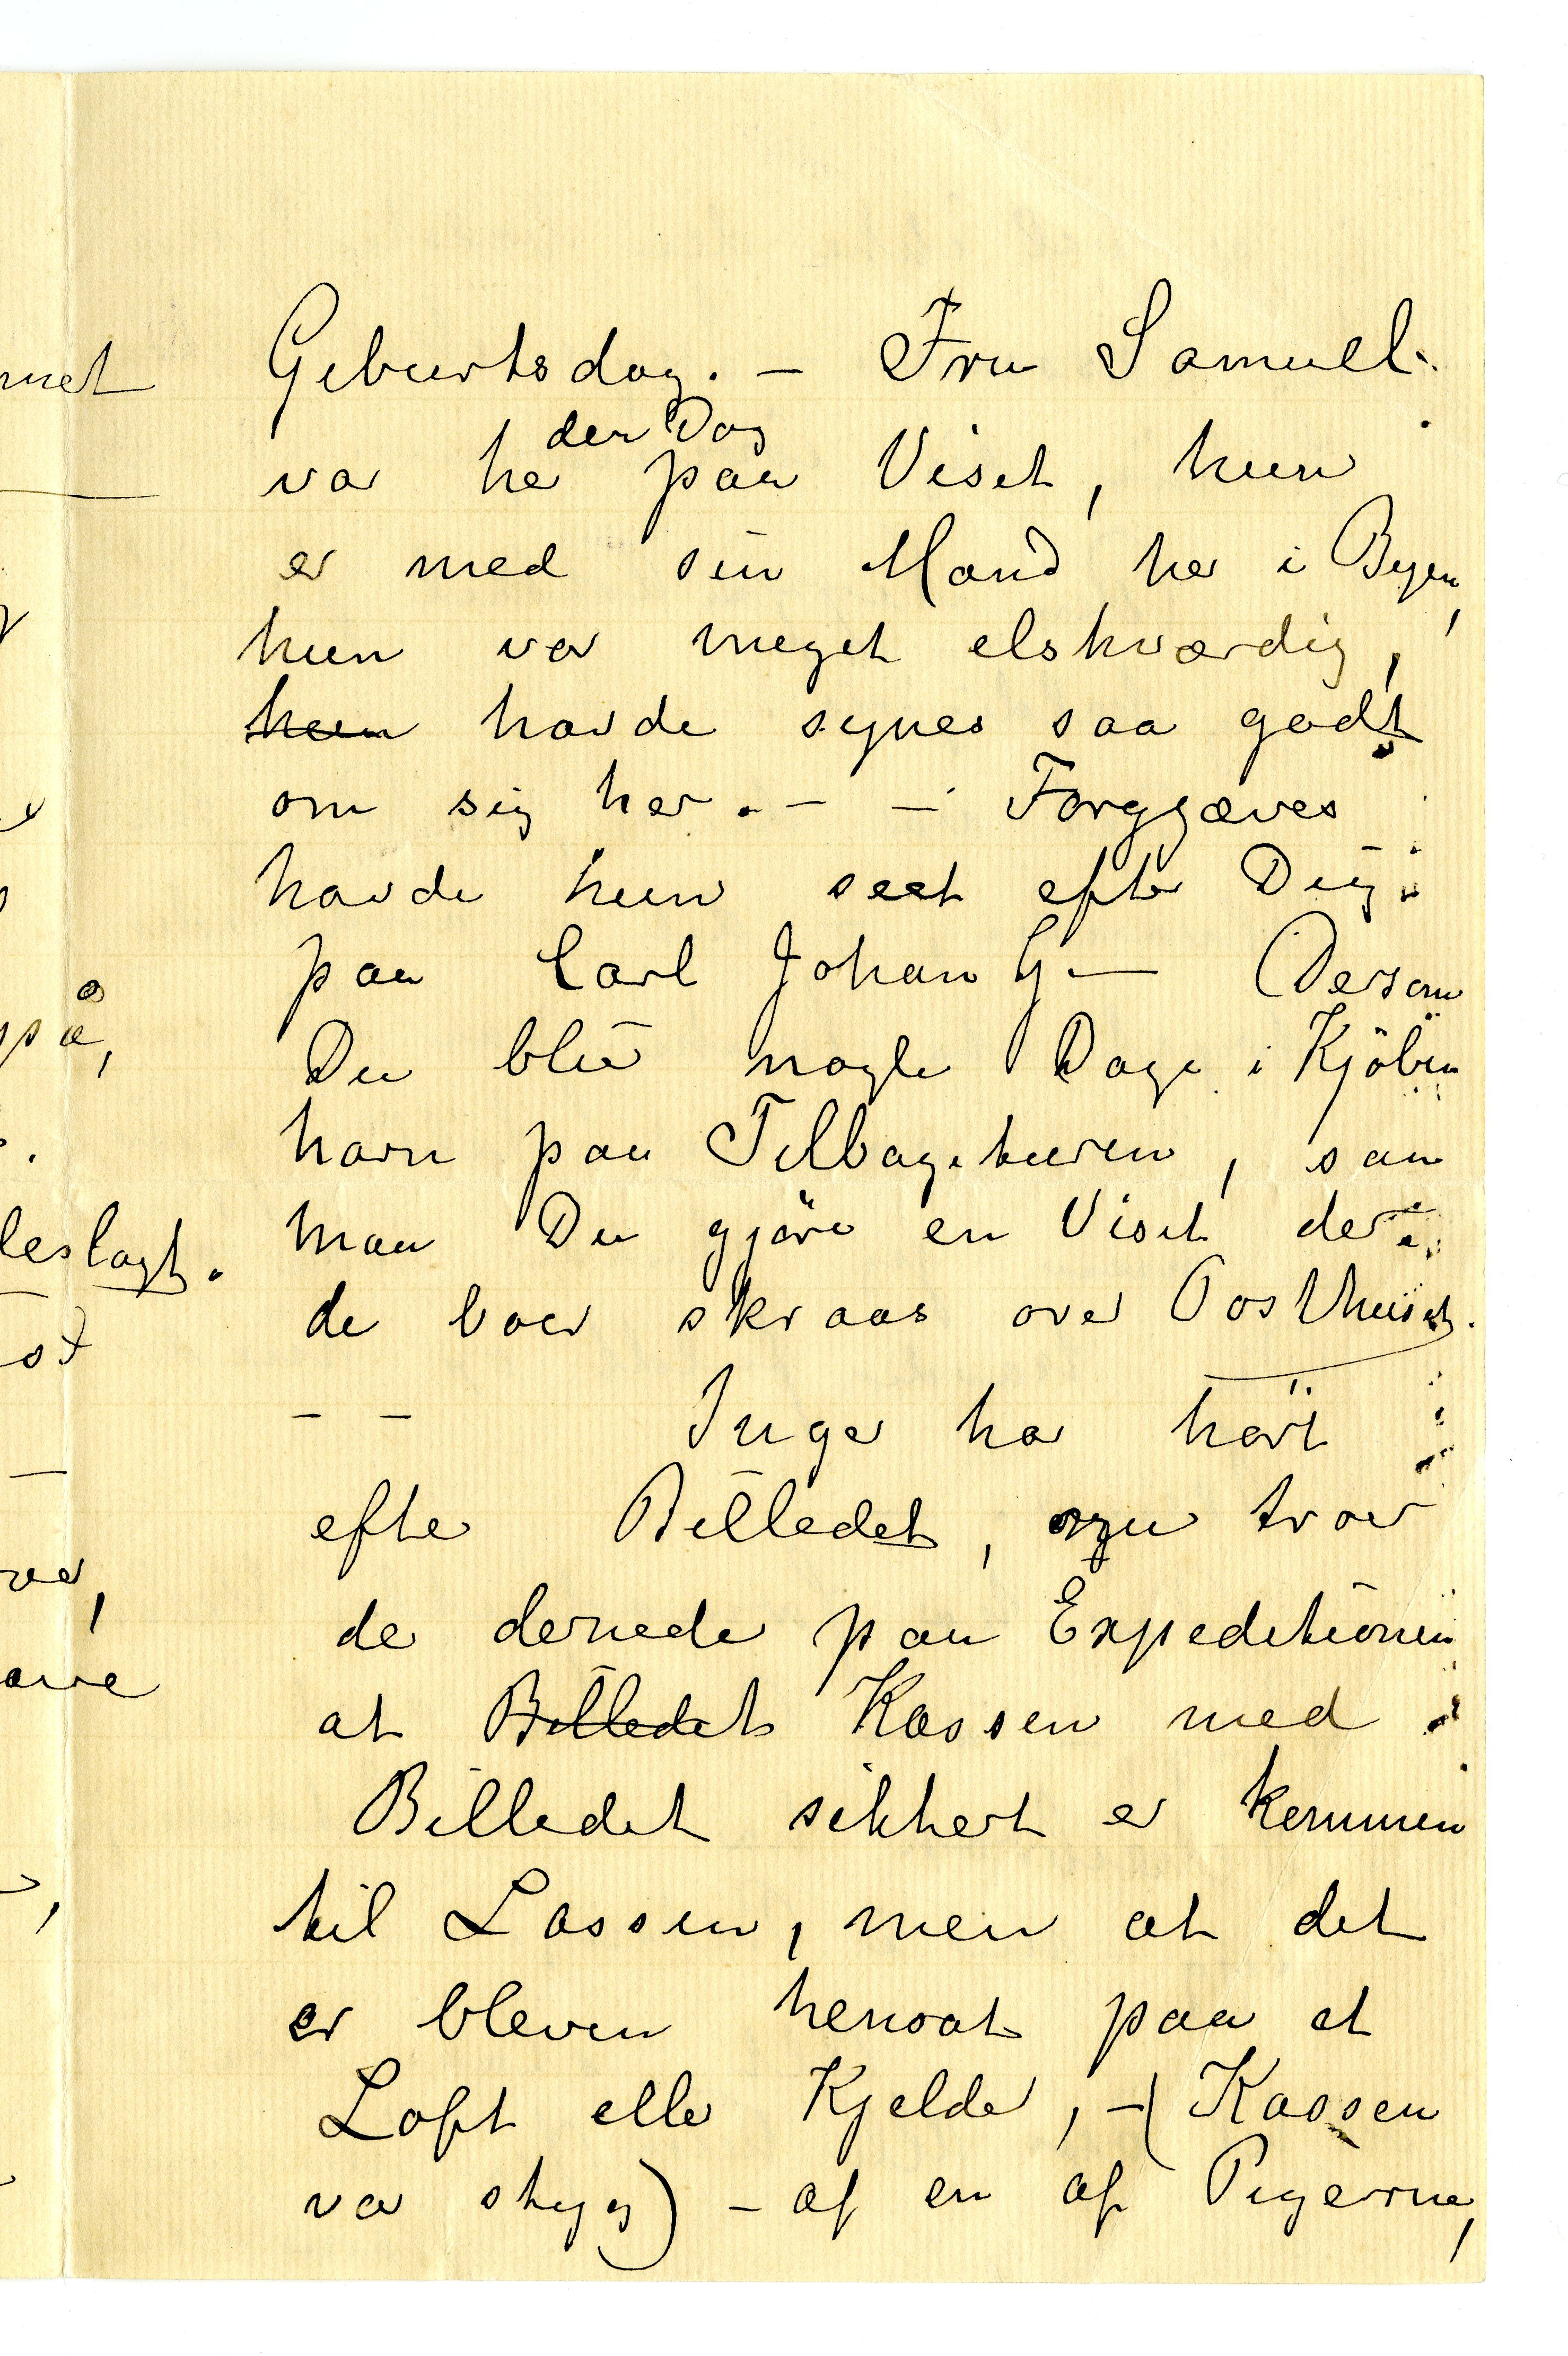 Geburtsdag. — Fru Samuel.
den Dag
var her paa Visit, hun
er med sin Mand her i Byen,
hun var meget elskværdig,
hun havde synes saa godt
om sig her. — — Forgjæves
havde hun seet efter Dig
paa Carl Johan G— (Dersom
Du blir nogle Dage i Kjöben
havn paa Tilbageturen, saa
maa Du gjöre en Visit der
de boer skraas over Posthuset.
— — Inger har hört
efter Billedet, nu troer
de dernede paa Expeditionen
at Billedet Kassen med
Billedet sikkert er kommen
til Lassen, men at det
er bleven hensat paa et
Loft eller Kjelder, — (Kassen
var styg) — af en af Pigerne,